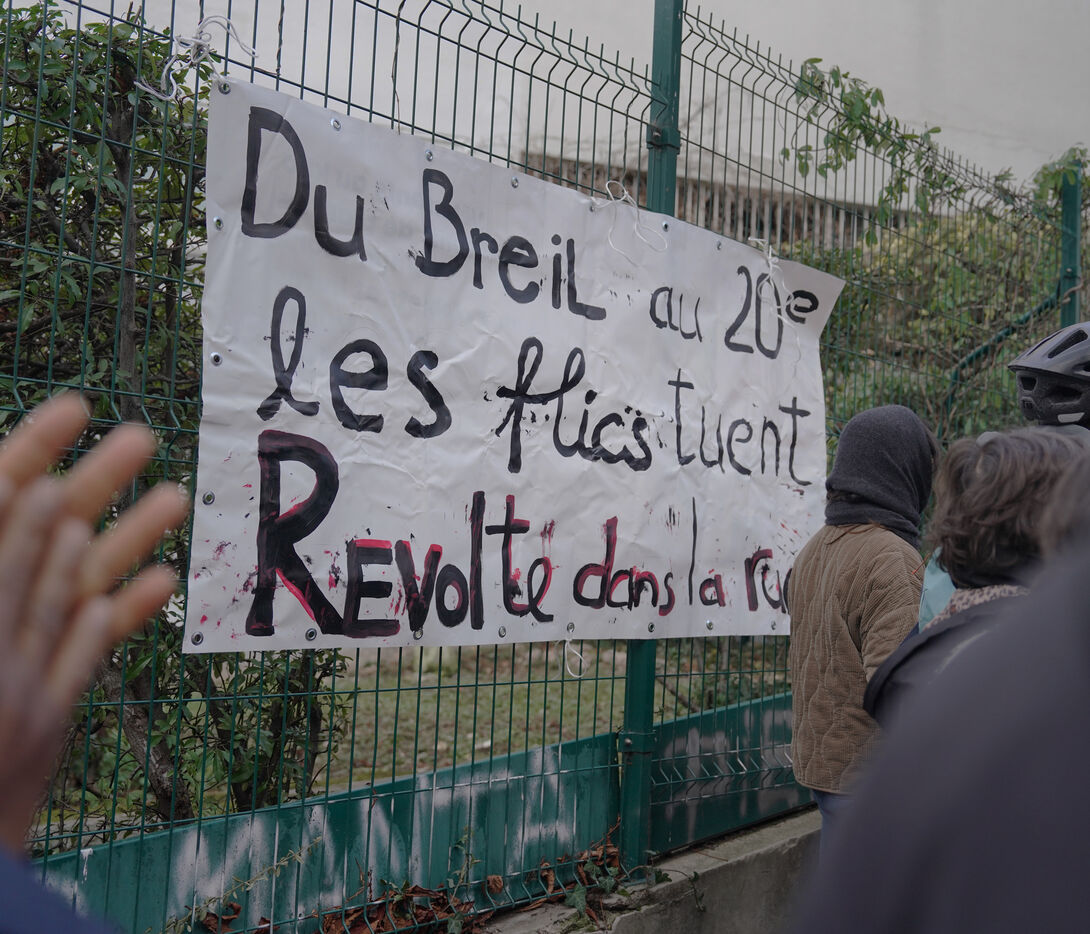 Du BreiL au 20e
les flics tuent
REvolte dans la ru